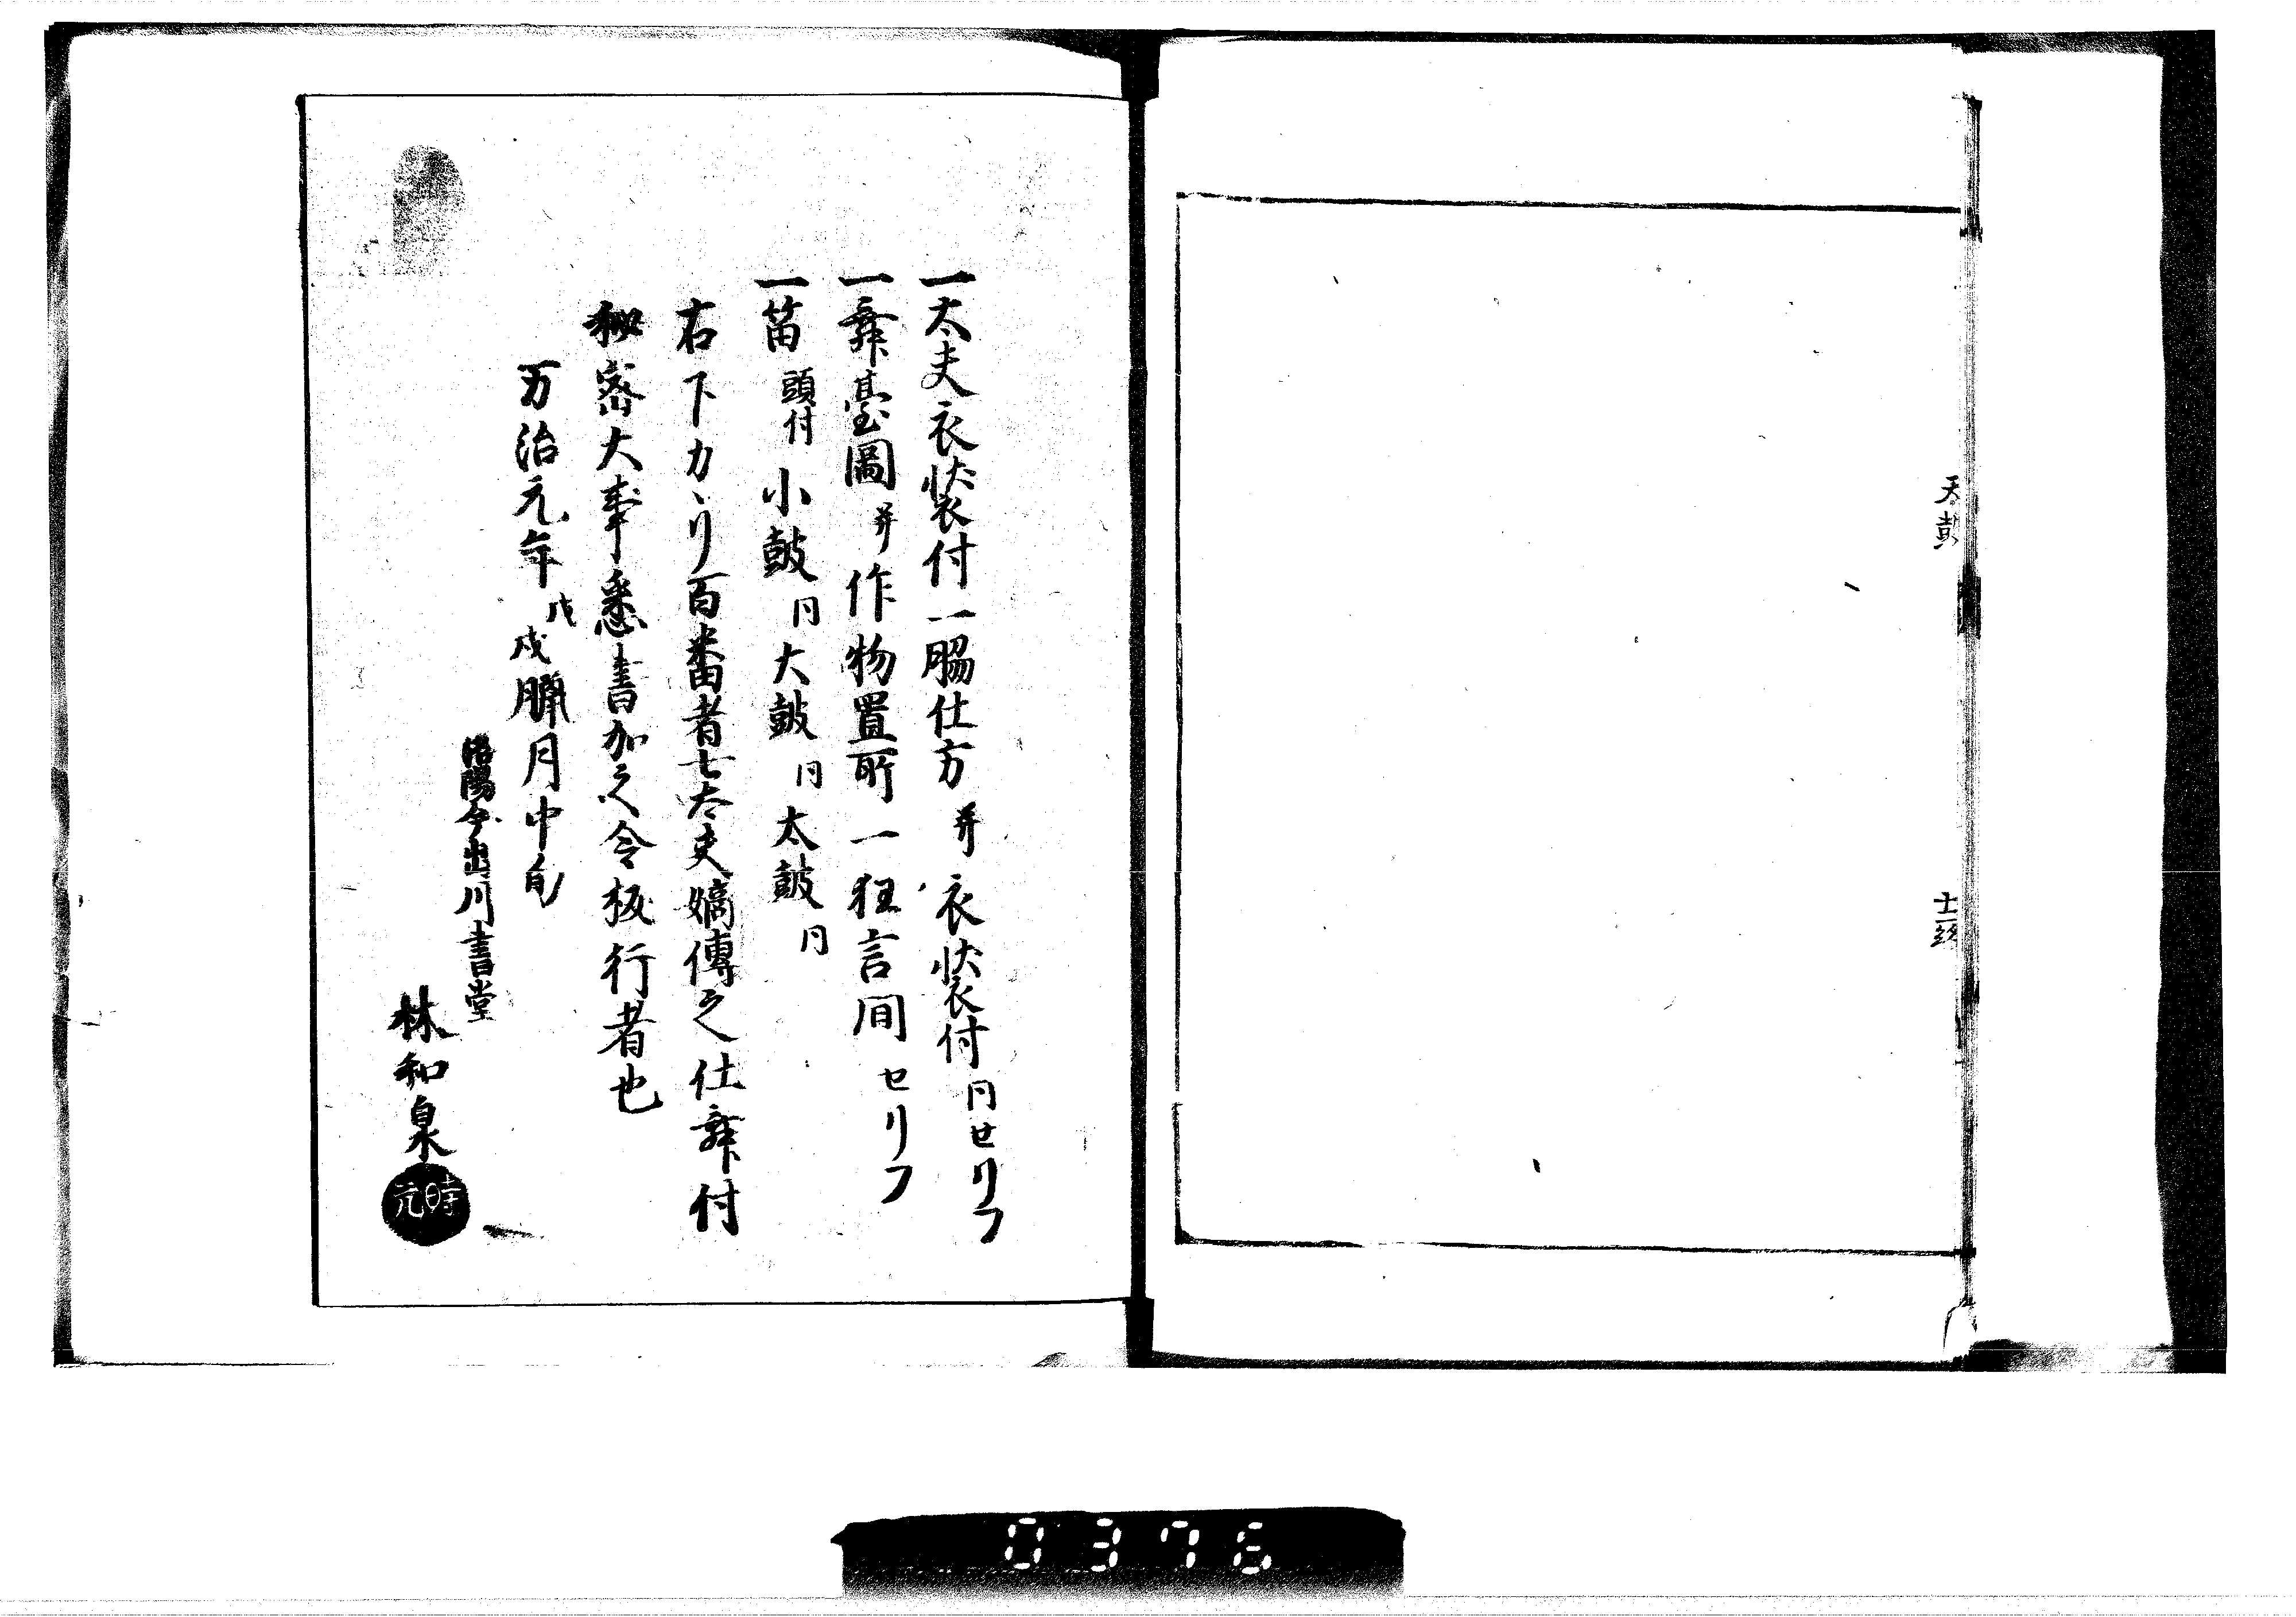 天皷
一太夫衣裝付一脇仕方并衣裝付同せリフ
一舞臺圖并作物置所一狂言間セリフ
一笛頭付小皷同大皷同太皷同
右下カヽリ百番者七太夫嫡傳之仕舞付
秘密大事悉書加之令板行者也
万治元年戊戌臘月中旬
洛陽今出川書堂
林和泉
時元
0376